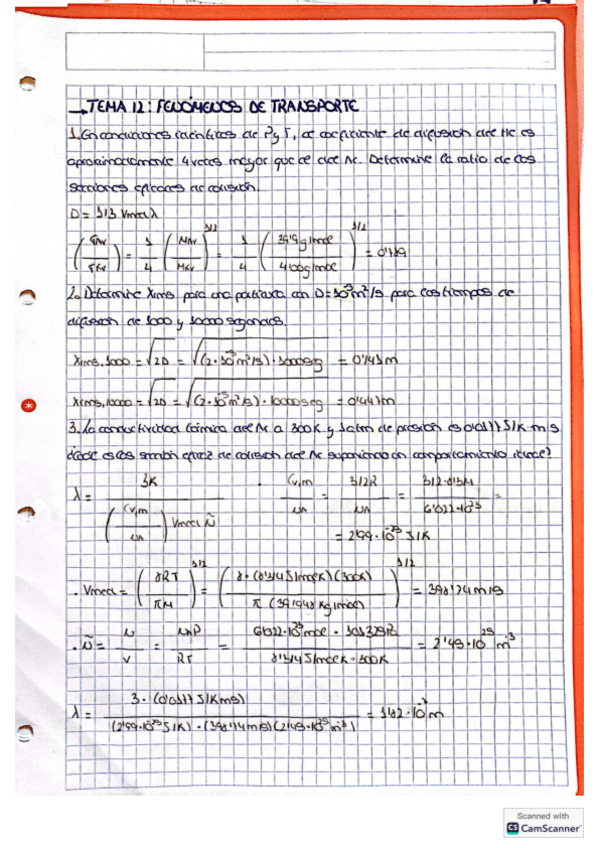 →TEMA 12: FENÓMENOS DE TRANSPORTE
1. En condiciones idénticas de P y T, el coeficiente de difusión del He es
aproximadamente 4 veces mayor que el del Ar. Determine la ratio de las
secciones eficaces de colisión.
D = 1/3 Vmed λ
= 1/4 = 1/4 (39'9 g/mol / 4'00 g/mol)^1/2 = 0'79
2. Determine Xrms para una partícula con D = 10^-5 m²/s para los tiempos de
difusión de 1000 y 10000 segundos.
Xrms, 1000 = √2D = √(2·10^-5 m²/s)·1000 seg = 0'141 m
Xrms, 10000 = √2D = √(2·10^-5 m²/s)·10000 seg = 0'447 m
3. La conductividad térmica del Ar a 300K y 1 atm de presión es 0'0177 J/K·m·s
¿Cuál es la sección eficaz de colisión del Ar suponiendo un comportamiento ideal?
λ = 3K / ((Cv,m / NA) Vmed Ñ) · Cv,m / NA = 3/2R / NA = 3/2·8'314 / 6'022·10^23 =
= 2'99·10^-23 J/K
· Vmed = (8RT / πM)^1/2 = (8·(8'314 J/mol K)(300K) / π (39'948 kg/mol))^1/2 = 398'74 m/s
· Ñ = N / V = NAP / RT = 6'022·10^23 mol · 101325 Pa / 8'314 J/mol K · 300K = 2'49·10^25 m^-3
λ = 3·(0'0177 J/K m s) / (2'99·10^-23 J/K)·(398'74 m/s)(2'49·10^25 m^-3) = 10^-7 m
Scanned with
CS CamScanner